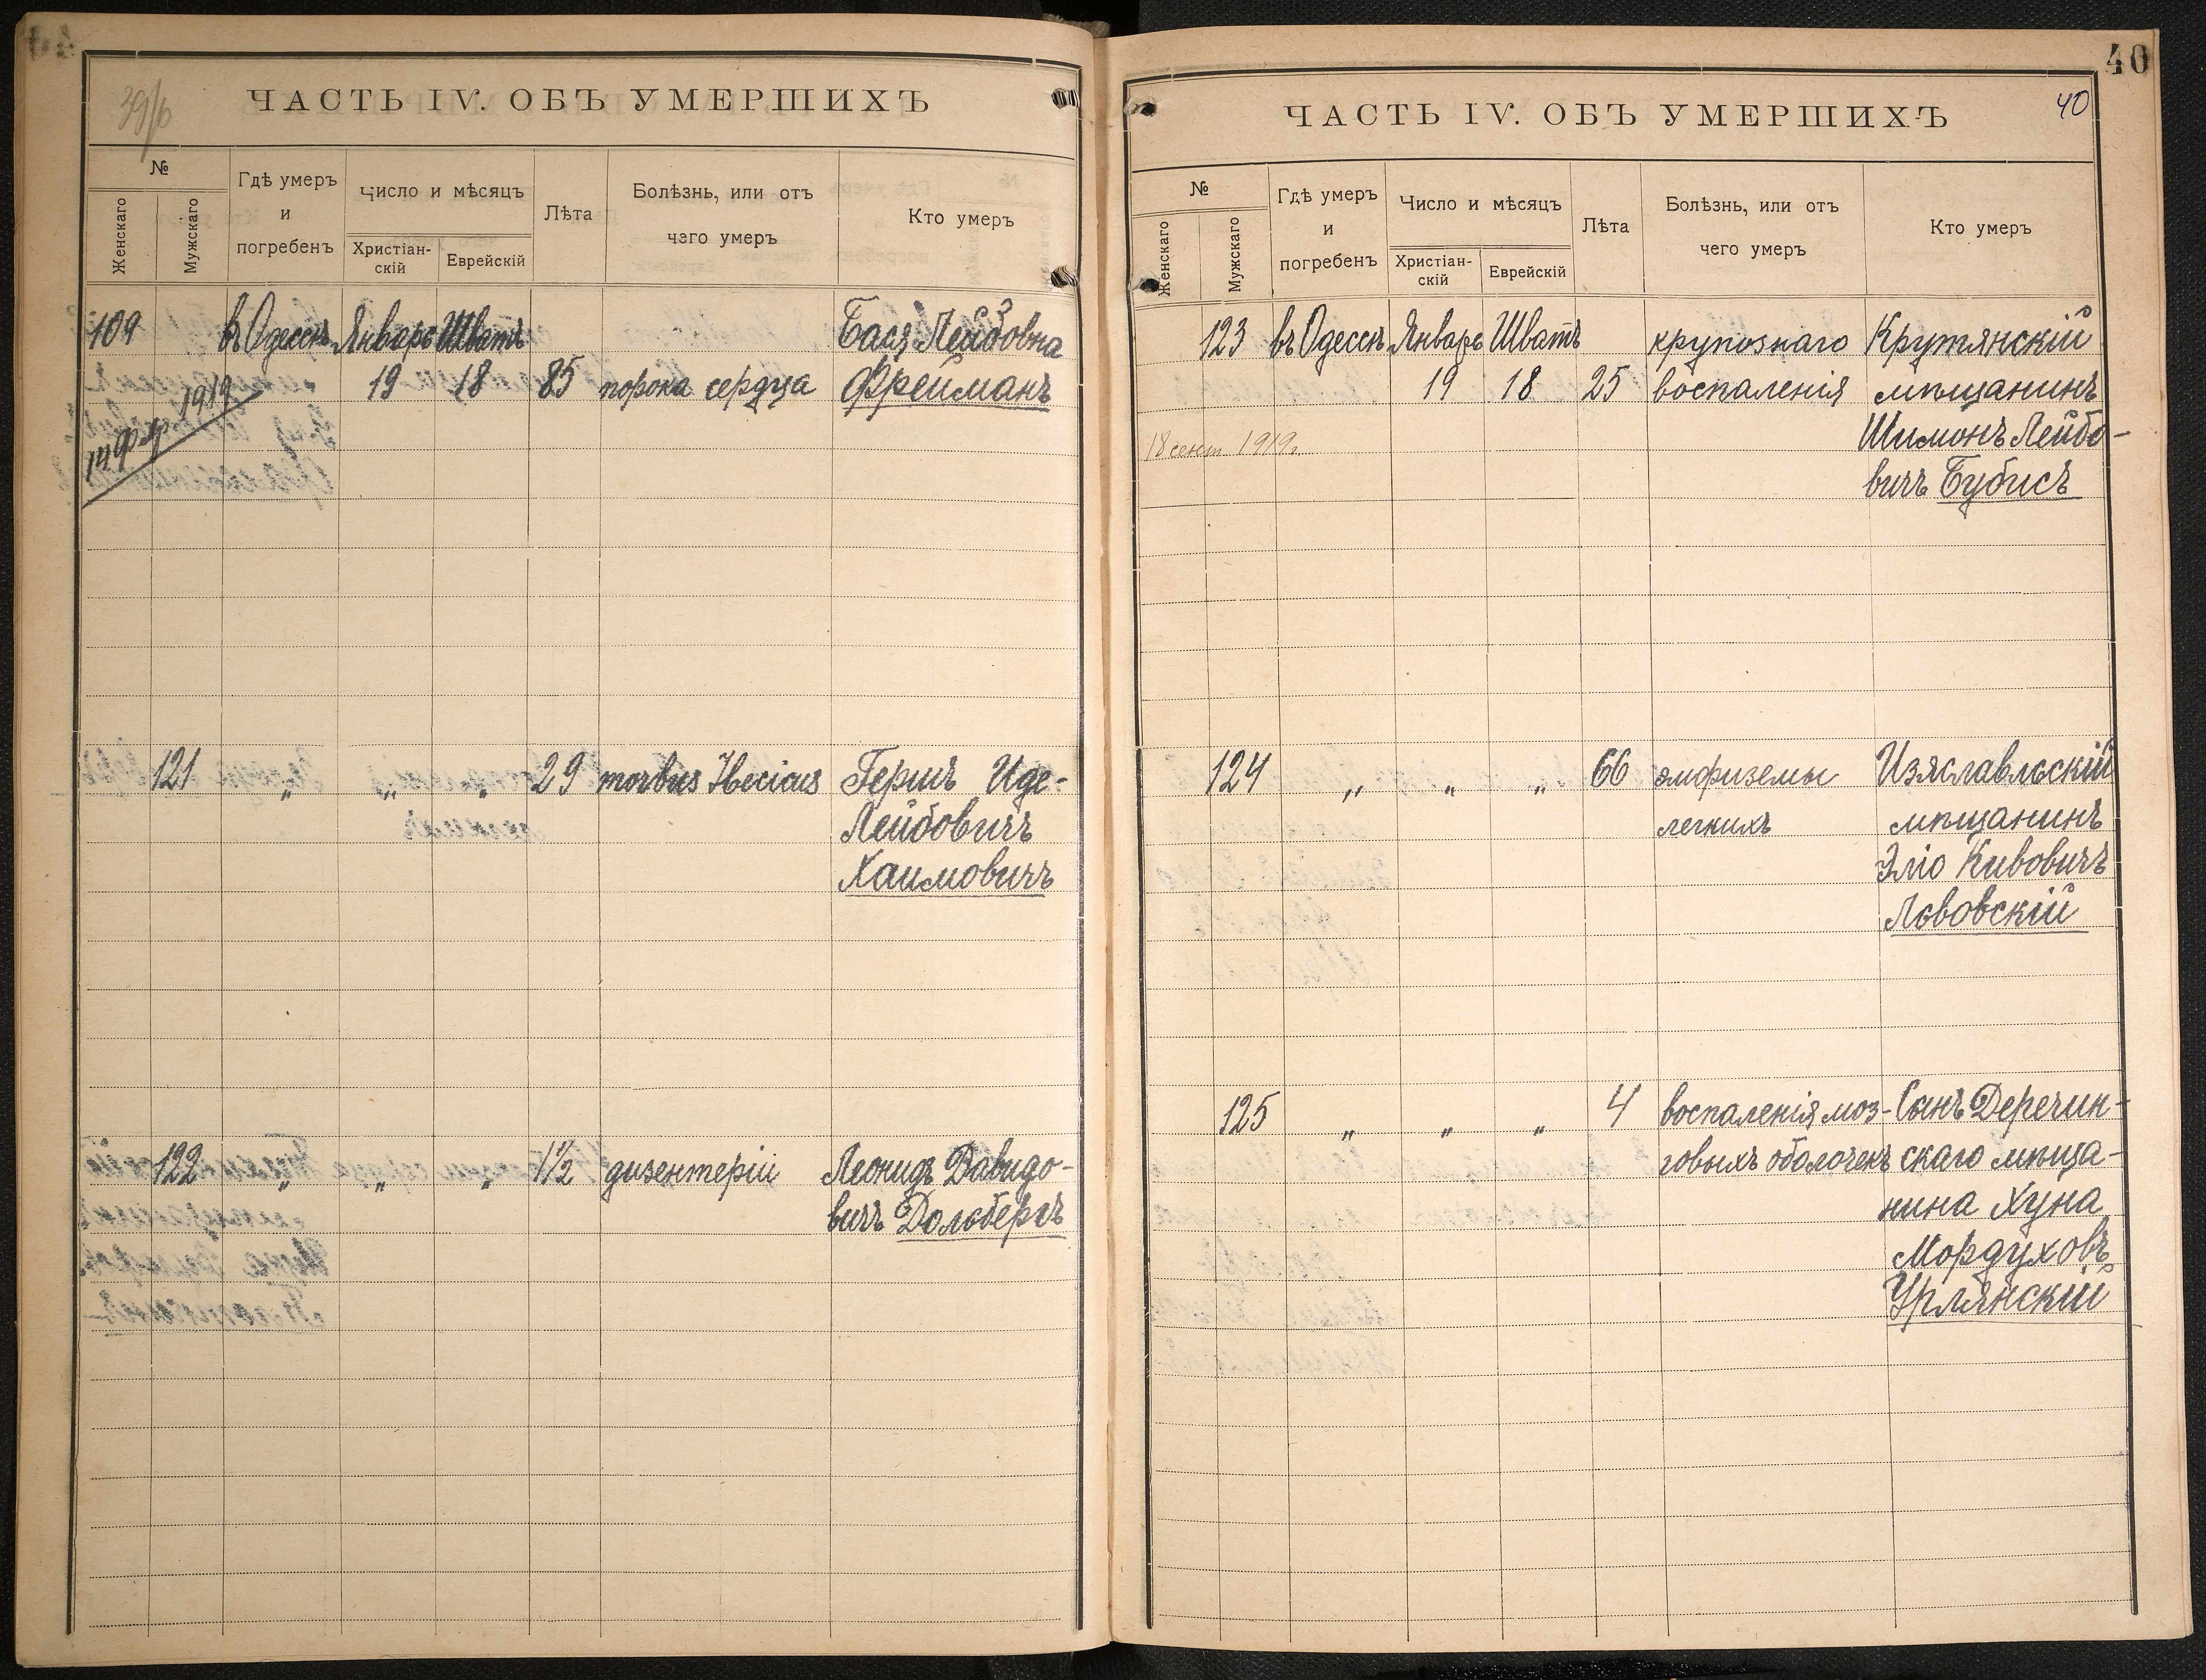 39/б
ЧАСТЬ IV. ОБЪ УМЕРШИХЪ
№
Женскаго
Мужскаго
Гдѣ умеръ
и
погребенъ
Число и мѣсяцъ
Христіан-
скій
Еврейскій
Лѣта
Болѣзнь, или отъ
чего умеръ
Кто умеръ
109 въ Одессѣ Январь Шватъ Бася Лейбовна
19 18 85 порока сердца Фрейманъ
1919
121 „ „ „ 29 morbus Гершъ Иде-
Лейбовичъ
Хаимовичъ
122 „ „ „ 1½ дизентеріи Леонидъ Давидо-
вичъ Дольбергъ
40
ЧАСТЬ IV. ОБЪ УМЕРШИХЪ
40
№
Женскаго
Мужскаго
Гдѣ умеръ
и
погребенъ
Число и мѣсяцъ
Христіан-
скій
Еврейскій
Лѣта
Болѣзнь, или отъ
чего умеръ
Кто умеръ
123 въ Одессѣ Январь Шватъ крупознаго Крутянскій
19 18 25 воспаленія мѣщанинъ
18 сент 1919г Шимонъ Лейбо-
вичъ Бубисъ
124 „ „ „ 66 эмфиземы Изяславльскій
легкихъ мѣщанинъ
Эліо Кивовичъ
Львовскій
125 „ „ „ 4 воспаленія моз- Сынъ Деречин-
говыхъ оболочекъ скаго мѣща-
нина Хуна
Мордуховъ
Урлянскій